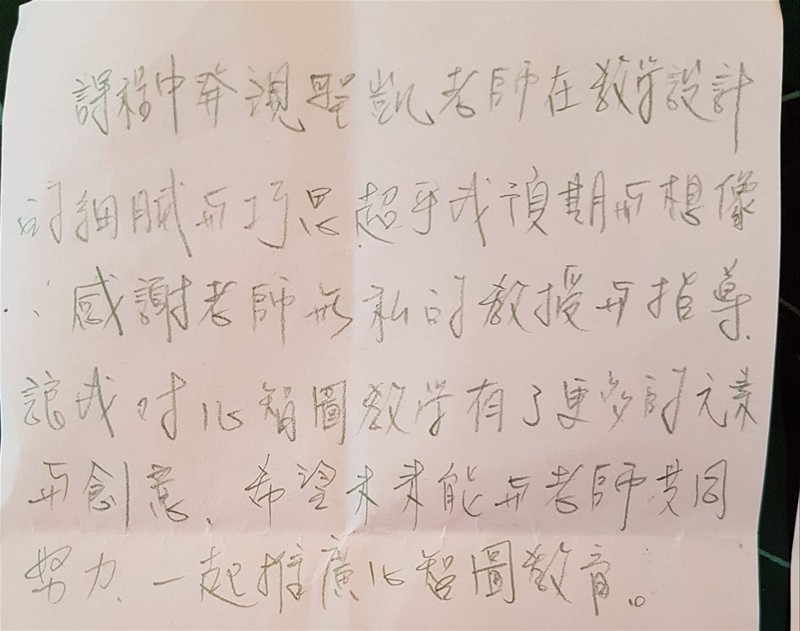 課程中發現聖凱老師在教学設計
的細膩与巧思超乎我預期与想像
，感謝老師無私的教授与指導
讓我对心智圖教学有了更多的元素
与創意，希望未來能与老師共同
努力，一起推廣心智圖教育。